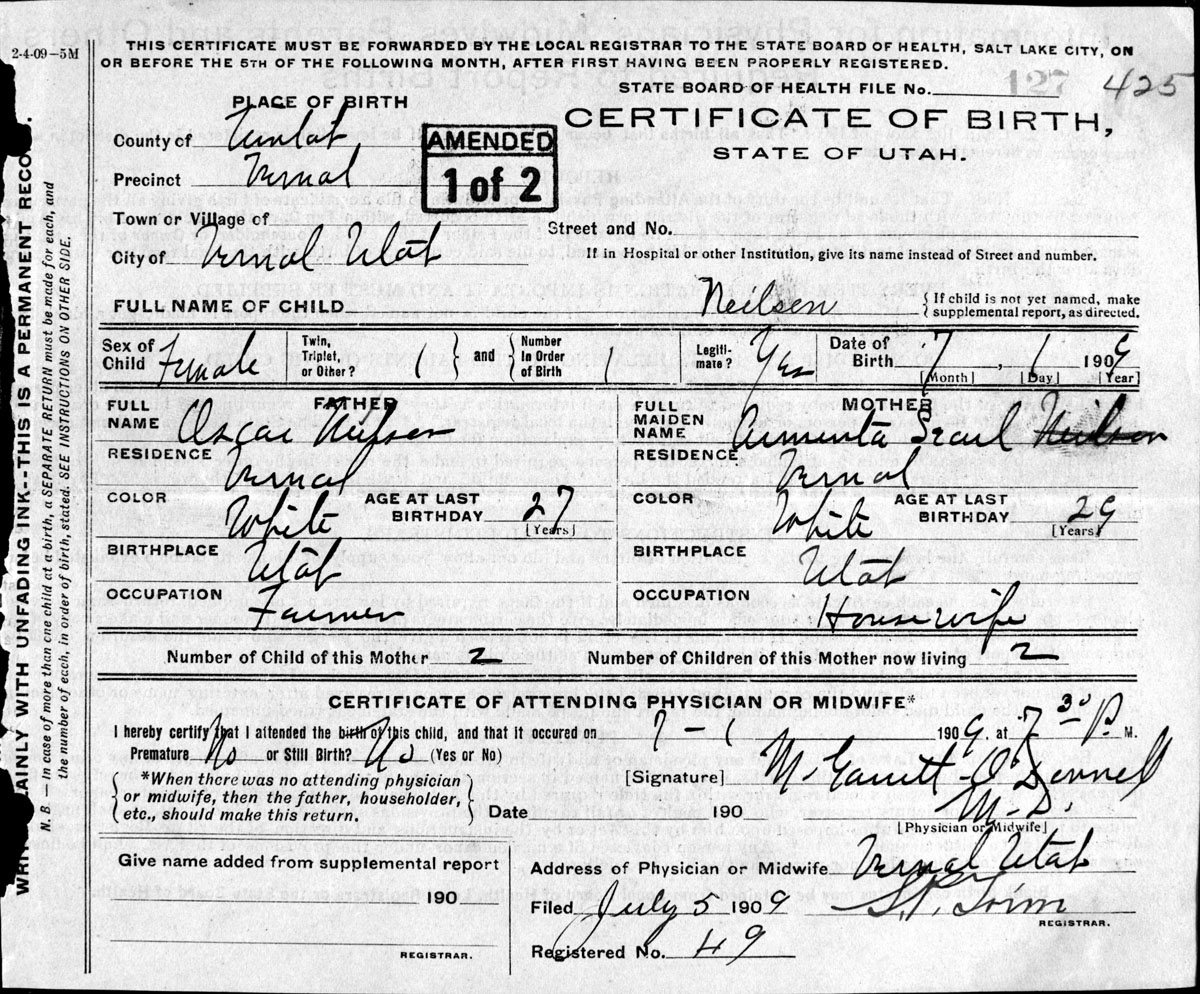 2-4-09—5M
THIS CERTIFICATE MUST BE FORWARDED BY THE LOCAL REGISTRAR TO THE STATE BOARD OF HEALTH, SALT LAKE CITY, ON
OR BEFORE THE 5TH OF THE FOLLOWING MONTH, AFTER FIRST HAVING BEEN PROPERLY REGISTERED.
127
STATE BOARD OF HEALTH FILE No. 425
PLACE OF BIRTH
CERTIFICATE OF BIRTH,
STATE OF UTAH.
County of
AMENDED
1 of 2
Precinct Vernal
Town or Village of
Street and No.
City of Vernal Utah
If in Hospital or other Institution, give its name instead of Street and number.
FULL NAME OF CHILD Neilsen { If child is not yet named, make supplemental report, as directed.
Sex of Child Female Twin, Triplet, or Other? 1 } and { Number In Order of Birth 1 Legitimate? Yes Date of Birth 7, 1 1909
[Month] [Day] [Year]
FATHER
FULL NAME Oscar Neilsen
RESIDENCE Vernal
COLOR White AGE AT LAST BIRTHDAY 27 [Years]
BIRTHPLACE Utah
OCCUPATION Farmer
MOTHER
FULL MAIDEN NAME Neilson
RESIDENCE Vernal
COLOR White AGE AT LAST BIRTHDAY 29 [Years]
BIRTHPLACE Utah
OCCUPATION Housewife
Number of Child of this Mother 2 Number of Children of this Mother now living 2
CERTIFICATE OF ATTENDING PHYSICIAN OR MIDWIFE*
I hereby certify that I attended the birth of this child, and that it occured on 7-1 1909. at 7 30 P. M.
Premature No or Still Birth? No (Yes or No)
*When there was no attending physician
or midwife, then the father, householder,
etc., should make this return.
[Signature] M Garrett-O Donnell
M.D.
Date 190
[Physician or Midwife]
Give name added from supplemental report
190
REGISTRAR.
Address of Physician or Midwife Vernal Utah
Filed July 5 1909
REGISTRAR.
Registered No. 49
WRITE PLAINLY WITH UNFADING INK--THIS IS A PERMANENT RECORD.
N. B.—In case of more than one child at a birth, a SEPARATE RETURN must be made for each, and
the number of each, in order of birth, stated. SEE INSTRUCTIONS ON OTHER SIDE.